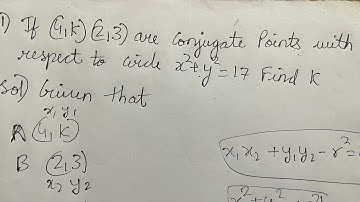 1) If (4,k) (2,3) are conjugate Points with
respect to circle x²+y²=17 Find K
Sol) Given that
x₁ y₁
A (4,k)
B (2,3)
x₂ y₂
x₁x₂ + y₁y₂ - r² =